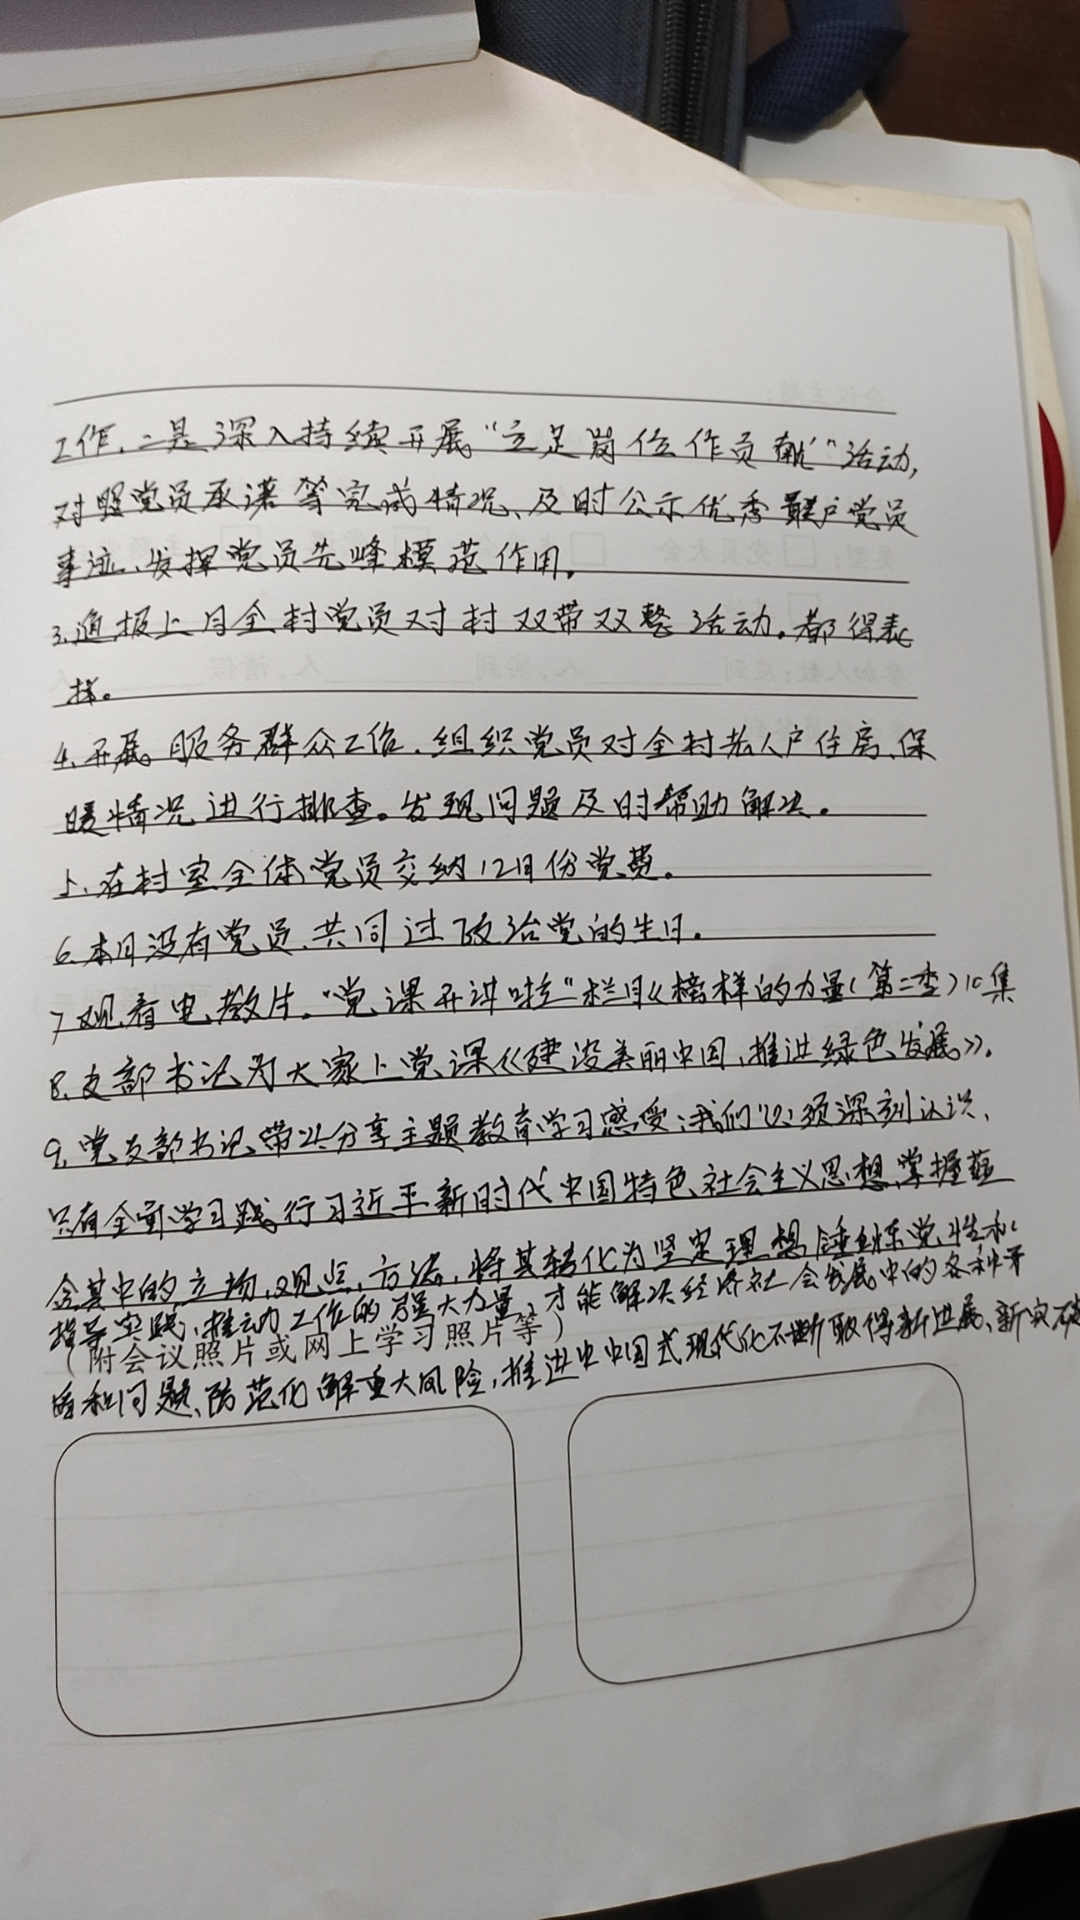 工作,二是深入持续开展“立足岗位作贡献”活动,
对照党员承诺等完成情况、及时公示优秀联户党员
事迹、发挥党员先峰模范作用。
3.通报上月全村党员对村双带双整活动。都得表
扬。
4.开展服务群众工作.组织党员对全村老人户住房、保
暖情况进行排查。发现问题及时帮助解决。
5、在村室全体党员交纳12月份党费。
6.本月没有党员、共同过政治党的生日。
7观看电教片.“党课开讲啦”栏目《榜样的力量(第二季)10集
8.支部书记为大家上党课《建设美丽中国,推进绿色发展》。
9.党支部书记带头分享主题教育学习感受:我们必须深刻认识、
只有全面学习践行习近平新时代中国特色社会主义思想,掌握蕴
含其中的立场、观点、方法,将其转化为坚定理想锤炼党性和
指导实践、推动工作的强大力量。才能解决经济社会发展中的各种矛
(附会议照片或网上学习照片等)
盾和问题、防范化解重大风险,推进中中国式现代化不断取得新进展、新突破